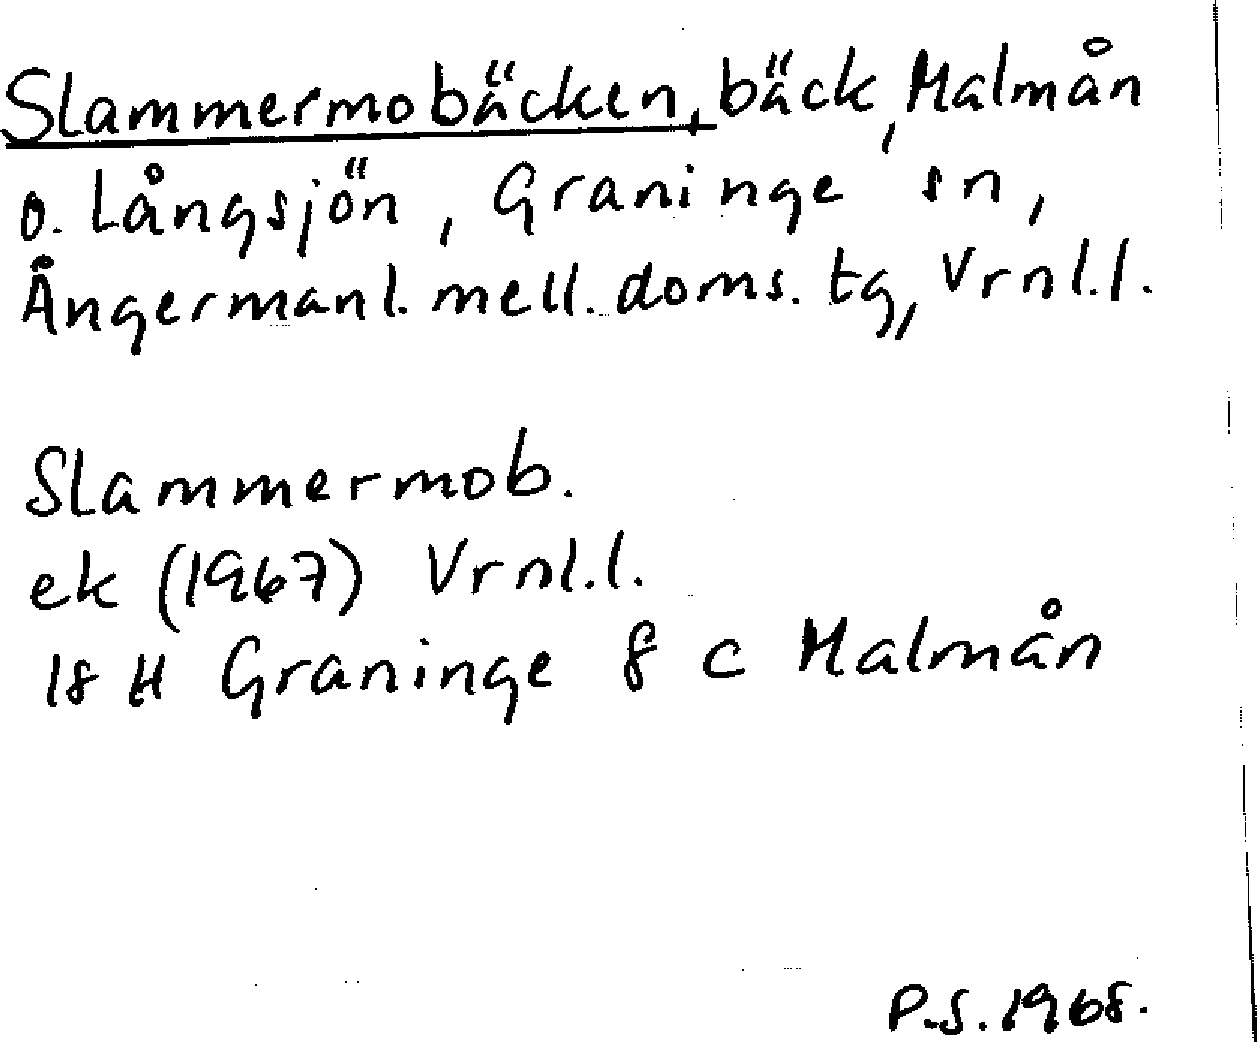 Slammermobäcken, bäck, Malmån
o. Långsjön, Graninge sn,
Ångermanl. mell. doms. tg, Vrnl.l.
Slammermob.
ek (1967) Vrnl.l.
18 H Graninge 8 c Malmån
P.S. 1968.